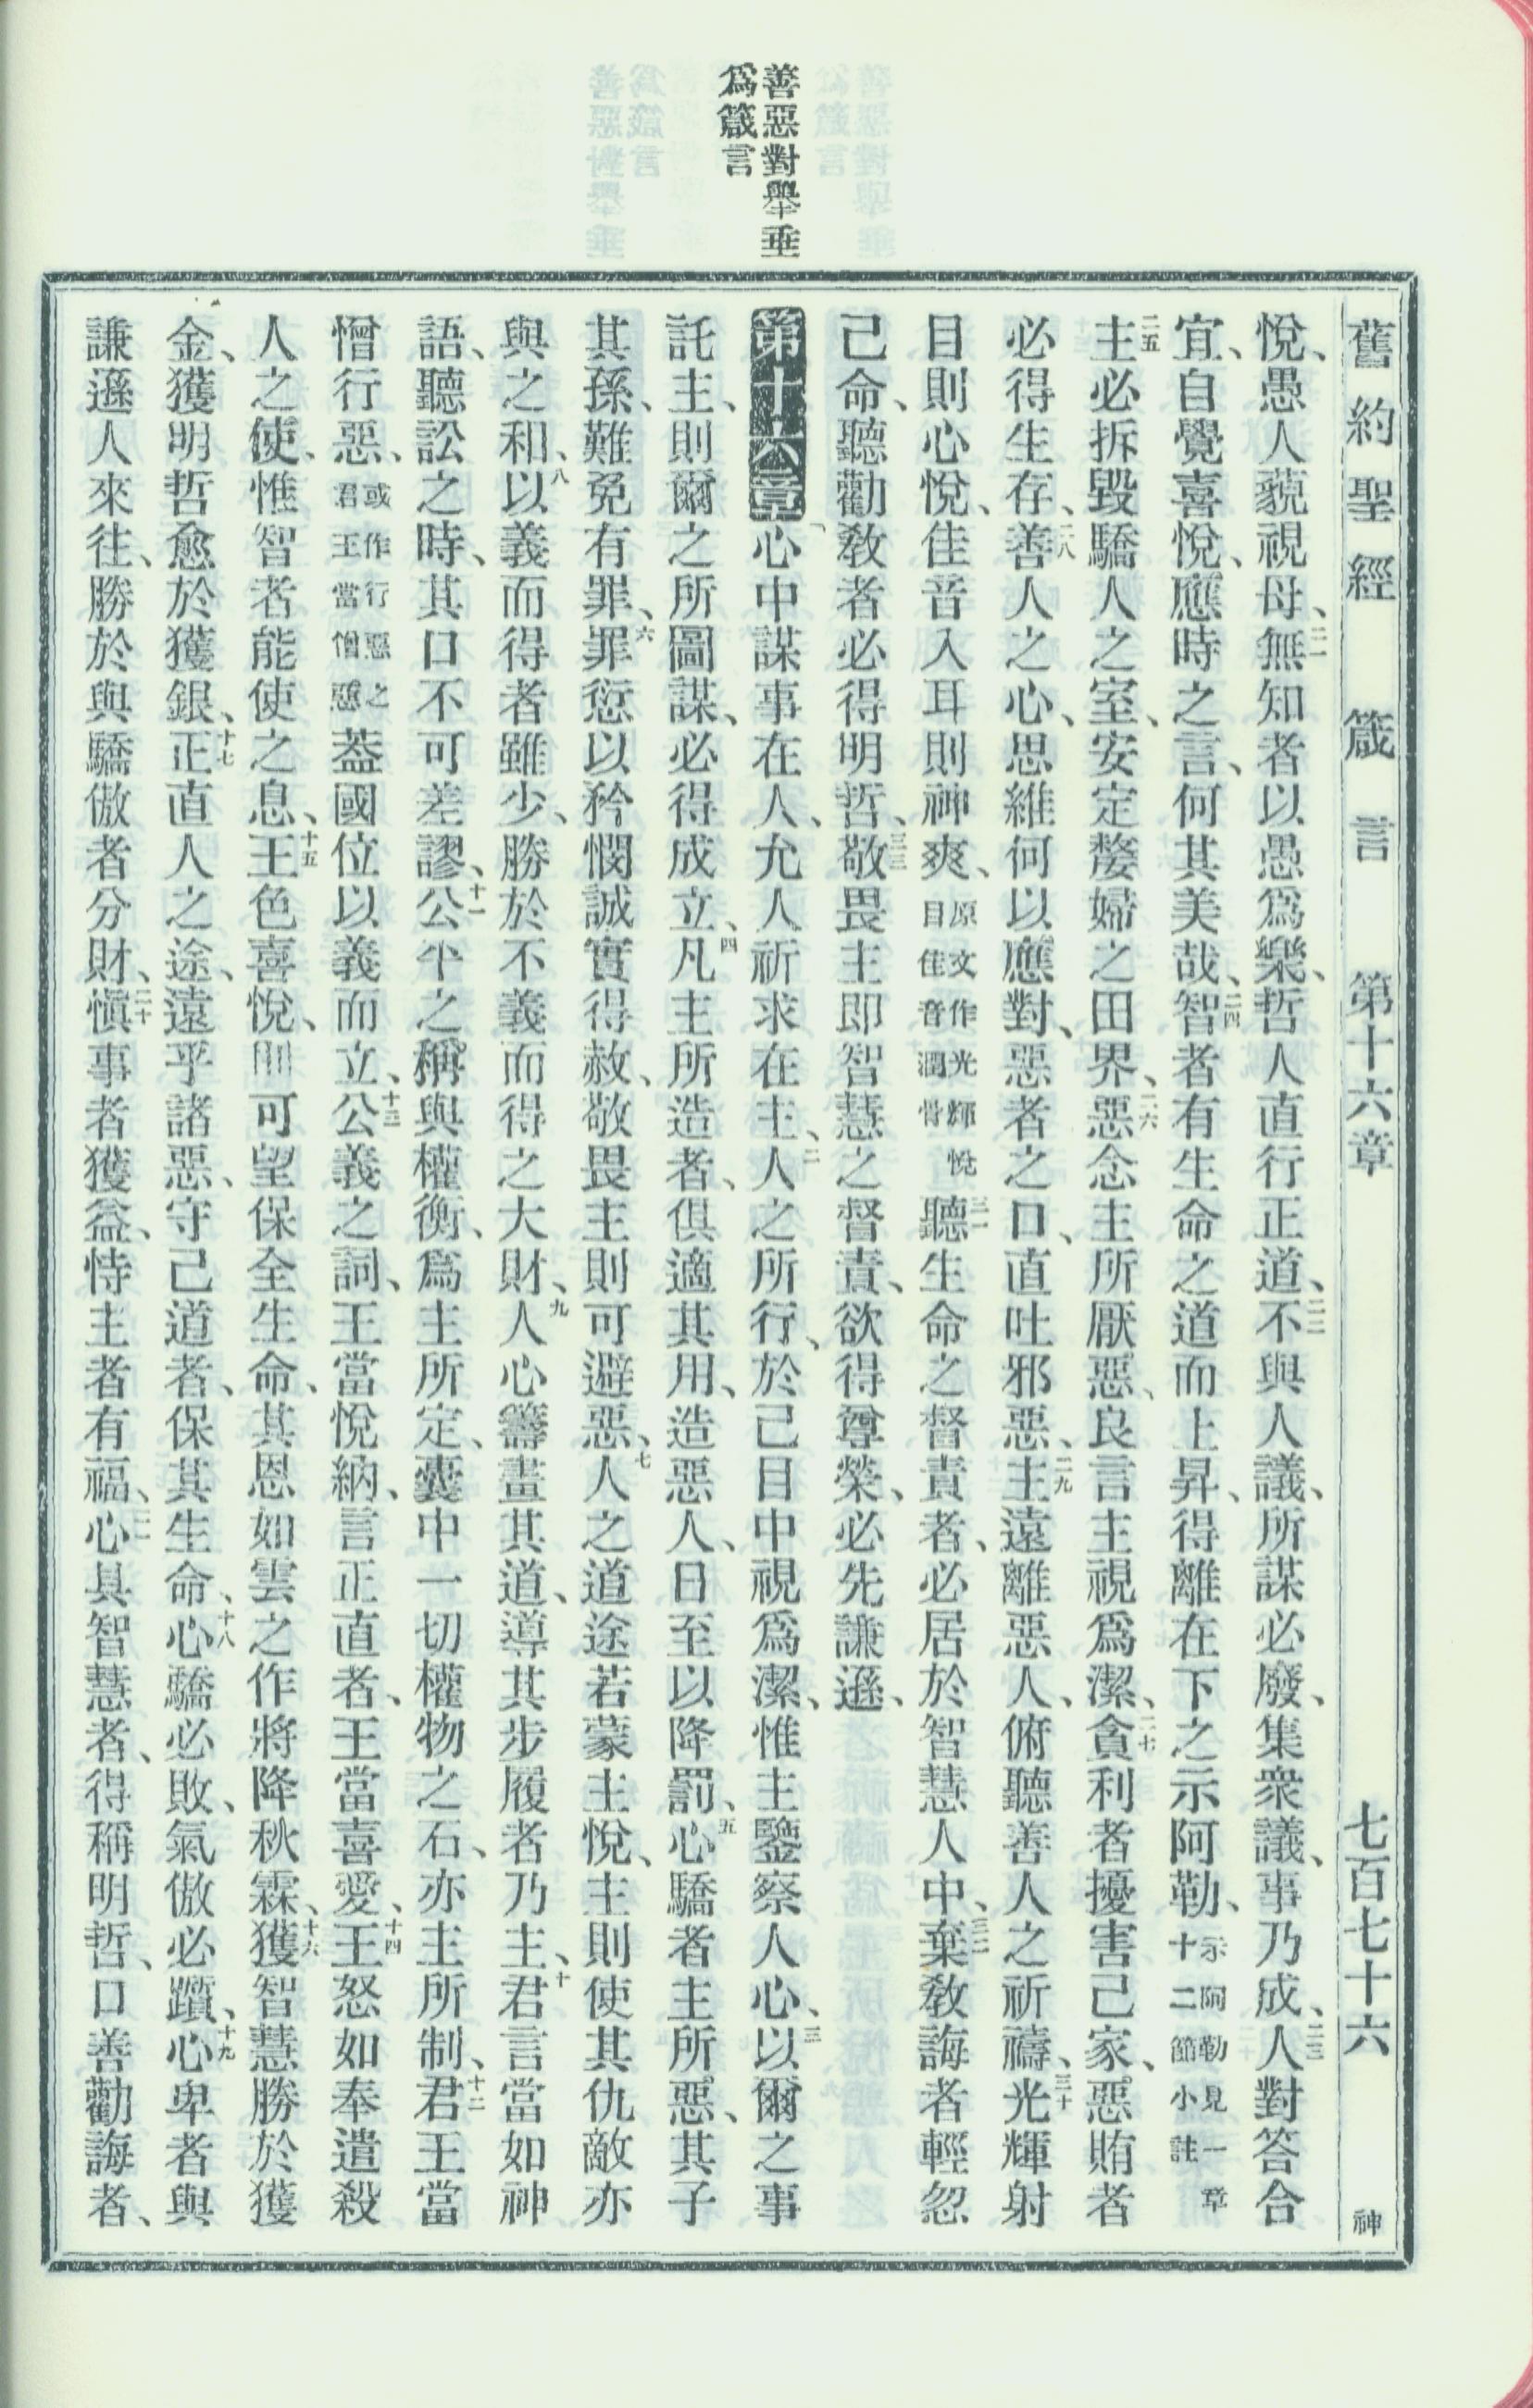 善惡對舉垂
爲箴言
舊約聖經 箴言 第十六章 七百七十六 神
悅、愚人藐視母、二一無知者以愚爲樂、哲人直行正道、二二不與人議、所謀必廢、集衆議、事乃成、二三人對答合
宜、自覺喜悅、應時之言、何其美哉、二四智者有生命之道而上昇、得離在下之示阿勒、示阿勒見一章十二節小註
二五主必拆毀驕人之室、安定嫠婦之田界、二六惡念主所厭惡、良言主視爲潔、二十七貪利者擾害己家、惡賄者
必得生存、二八善人之心、思維何以應對、惡者之口、直吐邪惡、二九主遠離惡人、俯聽善人之祈禱、三十光輝射
目則心悅、佳音入耳則神爽、原文作光輝悅目佳音潤骨三一聽生命之督責者、必居於智慧人中、三二棄教誨者輕忽
己命、聽勸教者必得明哲、三三敬畏主卽智慧之督責、欲得尊榮、必先謙遜、
第十六章一心中謀事在人、允人祈求在主、二人之所行、於己目中視爲潔、惟主鑒察人心、三以爾之事
託主、則爾之所圖謀、必得成立、四凡主所造者、俱適其用、造惡人、日至以降罰、五心驕者主所惡、其子
其孫、難免有罪、六罪愆以矜憫誠實得赦、敬畏主則可避惡、七人之道途若蒙主悅、主則使其仇敵亦
與之和、八以義而得者雖少、勝於不義而得之大財、九人心籌畫其道、導其步履者乃主、十君言當如神
語、聽訟之時、其口不可差謬、十一公平之稱與權衡、爲主所定、囊中一切權物之石、亦主所制、十二君王當
憎行惡、或作行惡之君王當憎惡蓋國位以義而立、十三公義之詞、王當悅納、言正直者、王當喜愛、十四王怒如奉遣殺
人之使、惟智者能使之息、十五王色喜悅、則可望保全生命、其恩如雲之作將降秋霖、十六獲智慧勝於獲
金、獲明哲愈於獲銀、十七正直人之途、遠乎諸惡、守己道者、保其生命、十八心驕必敗、氣傲必躓、十九心卑者與
謙遜人來往、勝於與驕傲者分財、二十愼事者獲益、恃主者有福、二一心具智慧者、得稱明哲、口善勸誨者、